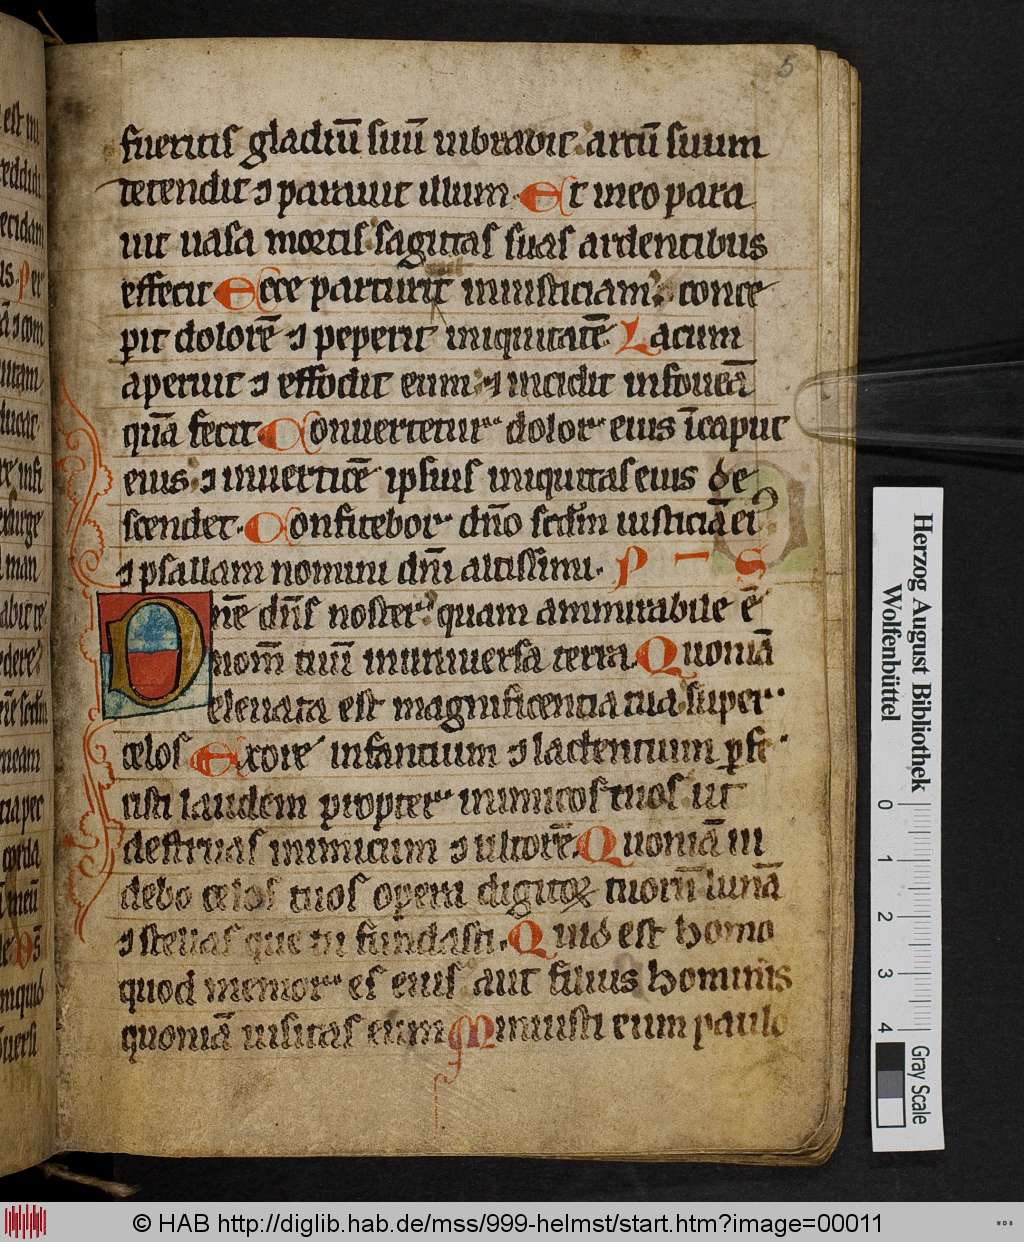 5
fueritis gladiū suū uibrabit arcū suum
tetendit ⁊ parauit illum. Et in eo para
uit uasa mortis sagittas suas ardentibus
effecit Ecce parturit iniusticiam conce
pit dolorē ⁊ peperit iniquitatē. Lacum
aperuit ⁊ effodit eum ⁊ incidit in foueā
quā fecit Conuertetur dolor eius ī caput
eius ⁊ in uerticē ipsius iniquitas eius de
scendet. Confitebor dn̄o scdm̄ iusticiā ei
⁊ psallam nomini dn̄i altissimi. P I S
Dn̄e dn̄s noster quam ammirabile ē
nom̄ tuū in uniuersa terra. Quoniā
eleuata est magnificentia tua super
celos Ex ore infantium ⁊ lactentium ꝑfe
cisti laudem propter inimicos tuos ut
destruas inimicum ⁊ ultorē. Quoniā ui
debo celos tuos opera digitoꝝ tuorū lunā
⁊ stellas que tu fundasti. Quid est homo
quod memor es eius aut filius hominis
quoniā uisitas eum Minuisti eum paulo
Herzog August Bibliothek
Wolfenbüttel
0 1 2 3 4
Gray Scale
© HAB http://diglib.hab.de/mss/999-helmst/start.htm?image=00011